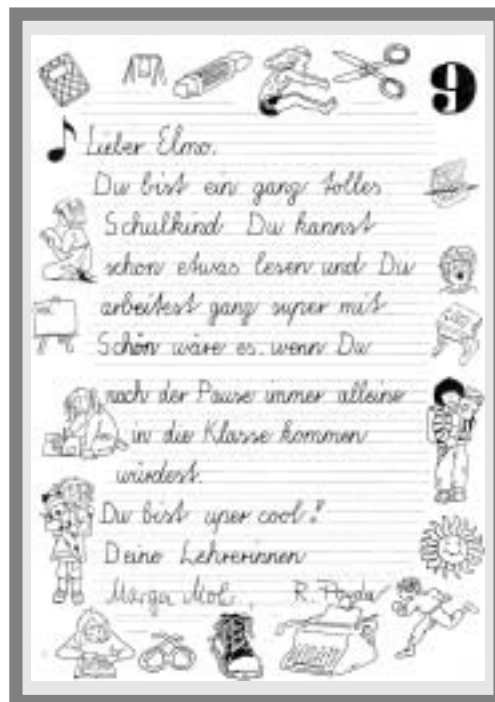 9
Lieber Elmo.
Du bist ein ganz tolles
Schulkind Du kannst
schon etwas lesen und Du
arbeitest ganz super mit
Schön wäre es. wenn Du
nach der Pause immer alleine
in die Klasse kommen
würdest.
Du bist uper cool!
Deine Lehrerinnen
Marga R.